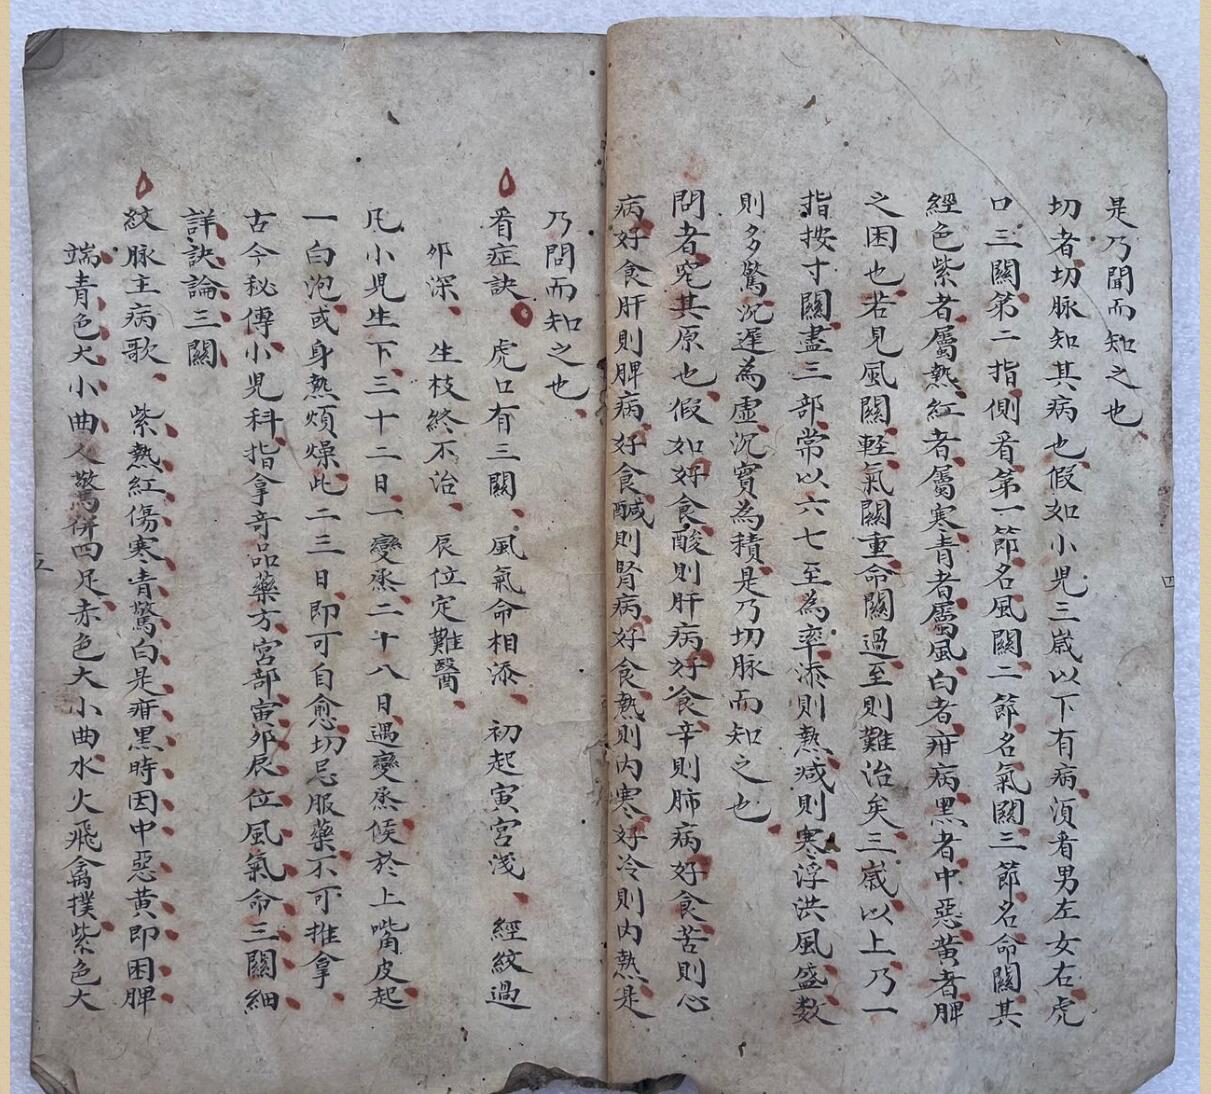 是乃聞而知之也
切者切脉知其病也假如小児三歳以下有病須看男左女右虎
口三關第二指側看第一節名風關二節名氣關三節名命關其
經色紫者屬熱紅者屬寒青者屬風白者疳病黒者中惡黄者脾
之困也若見風關軽氣關重命關過至則難治矣三歳以上乃一
指按寸關盡三部常以六七至為率添則熱减則寒浮洪風盛数
則多驚沉遲為虚沉實為積是乃切脉而知之也
問者究其原也假如好食酸則肝病好食辛則肺病好食苦則心
病好食肝則脾病好食醎則腎病好食熱則内寒好冷則内熱是
四
乃問而知之也
看症訣 虎口有三關 風氣命相添 初起寅宮淺 經紋過
夘深 生枝終不治 辰位定難醫
凡小児生下三十二日一變烝二十八日遇變烝候於上嘴皮起
一白泡或身熱煩燥此二三日即可自愈切忌服藥不可推拿
古今秘傳小児科指拿奇品藥方宮部寅夘辰位風氣命三關細
詳訣論三關
紋脉主病歌 紫熱紅傷寒青驚白是疳黒時因中惡黄即困脾
端青色大小曲人驚併四足赤色大小曲水火飛禽撲紫色大
五